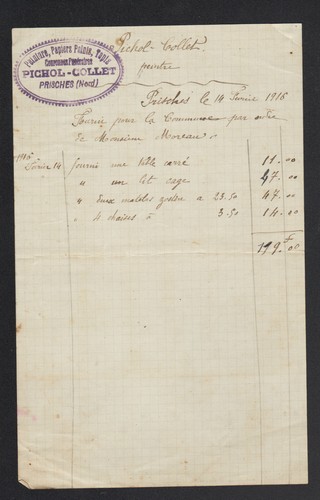 Peinture, Papiers Peints, Tapis
Couronnes Funéraires
PICHOL-COLLET
PRISCHES (Nord)
Pichol-Collet
peintre
Prisches le 14 Février 1916
Fourni pour la Commune par ordre
de Monsieur Moreau
1916
Février 14 fourni une table carré 11.00
" un lit cage 47.00
" deux matelas a 23.50 47.00
" 4 chaises à 3.50 14.00
119 F 00